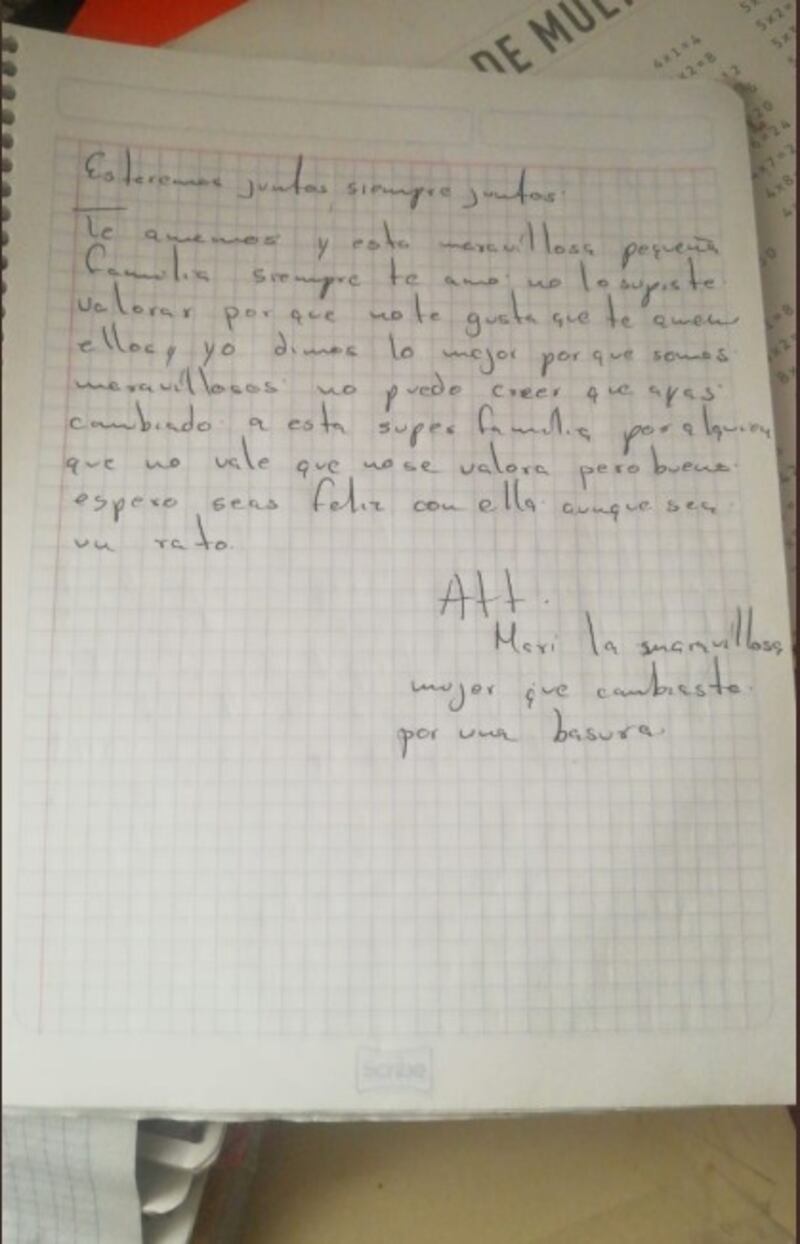 Estaremos juntos siempre juntos.
Te amamos y esta maravillosa pequeña
familia siempre te amo no lo supiste
valorar por que no te gusta que te amen
ellos y yo dimos lo mejor por que somos
maravillosos no puedo creer que ayas
cambiado a esta super familia por alguien
que no vale que no se valora pero bueno
espero seas feliz con ella aunque sea
un rato.
Att.
Mari la maravillosa
mujer que cambiaste
por una basura
Scribe
DE MUL
4x1=4
x2=8